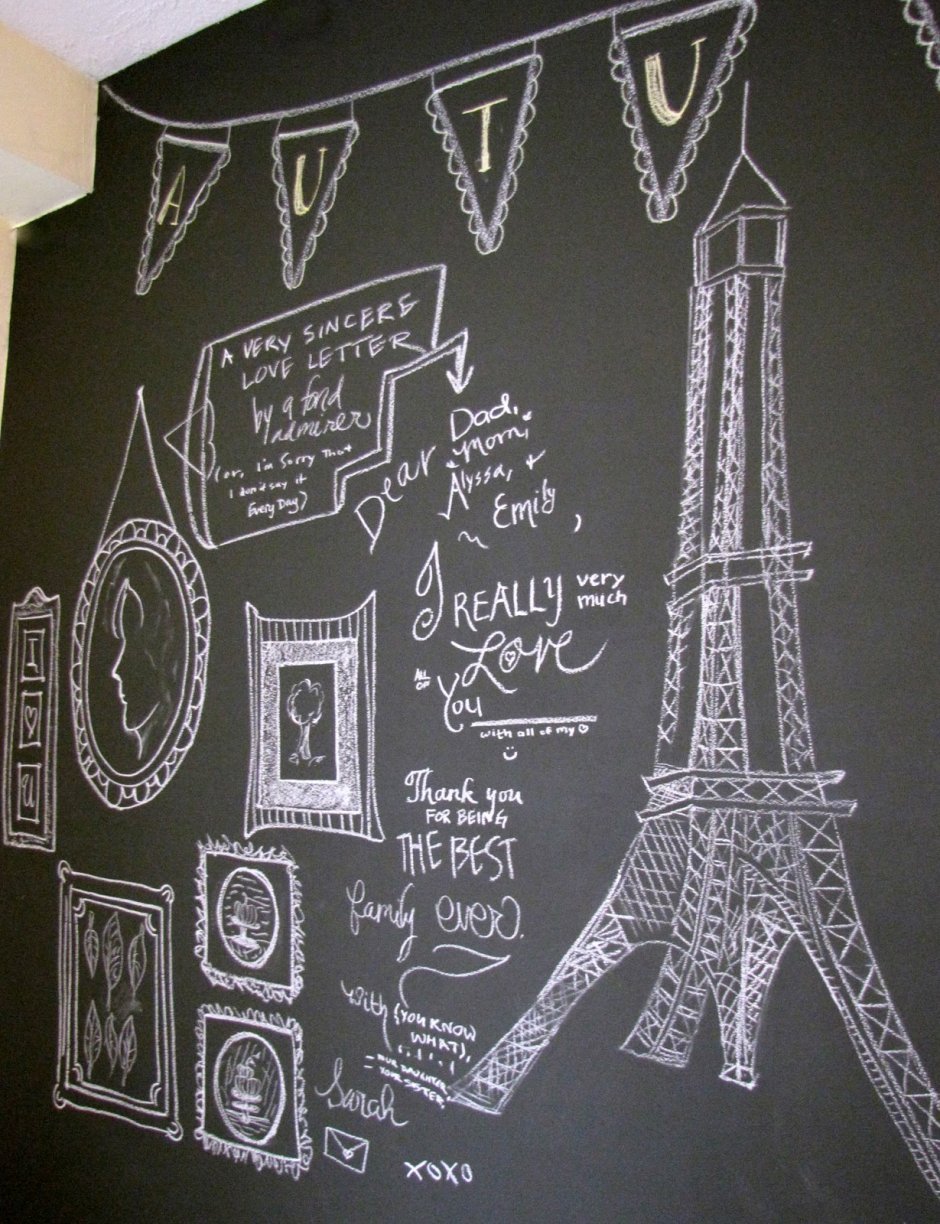 A U T U
A VERY SINCERE
LOVE LETTER
by a fond
admirer
(or, I'm Sorry That
I don't say it
Every Day)
Dear Dad,
Mom,
Alyssa, +
Emily,
~
I REALLY very
much
LOVE
ALL
OF
You
with all of my ♡
I
♡
u
Thank you
FOR BEING
THE BEST
family ever.
With (YOU KNOW
WHAT),
- OUR DAUGHTER,
- YOUR SISTER,
Sarah
XOXO